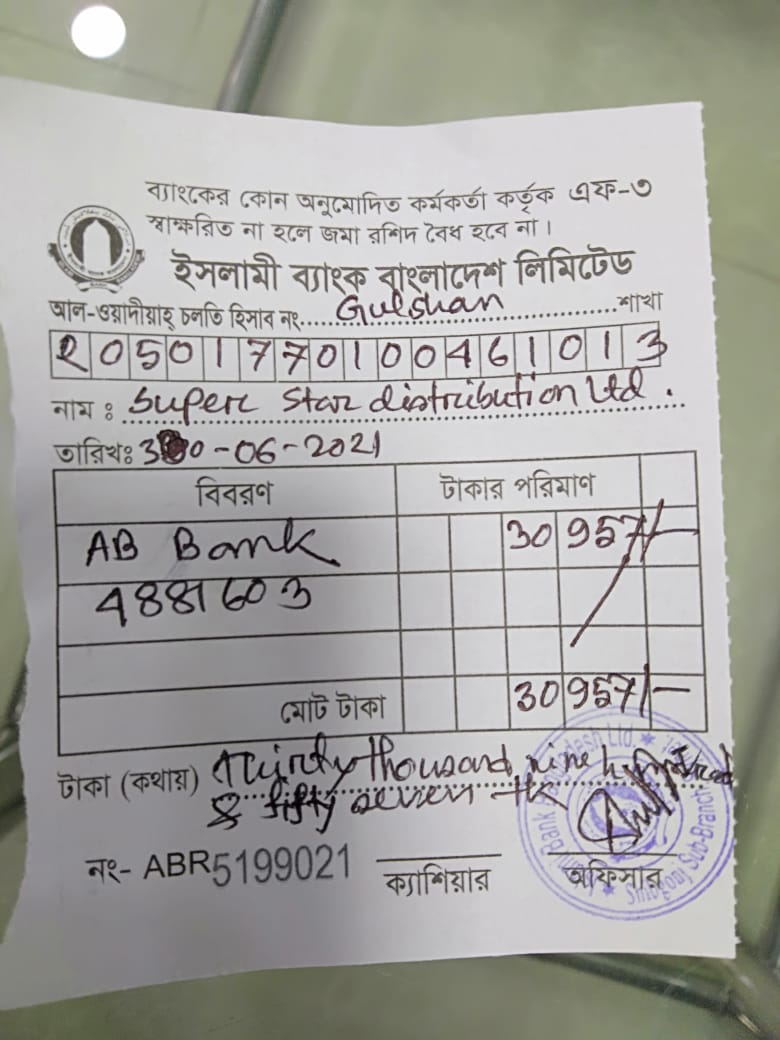 ব্যাংকের কোন অনুমোদিত কর্মকর্তা কর্তৃক এফ-৩
স্বাক্ষরিত না হলে জমা রশিদ বৈধ হবে না।
ইসলামী ব্যাংক বাংলাদেশ লিমিটেড
আল-ওয়াদীয়াহ্ চলতি হিসাব নং...Gulshan...শাখা
20501770100461013
নাম : Super Star distribution Ltd.
তারিখঃ 30-06-2021
বিবরণ টাকার পরিমাণ
AB Bank 30957/-
4881603
মোট টাকা 30957/-
টাকা (কথায়) Thirty thousand nine hundred
& fifty seven tk
নং- ABR5199021 ক্যাশিয়ার অফিসার